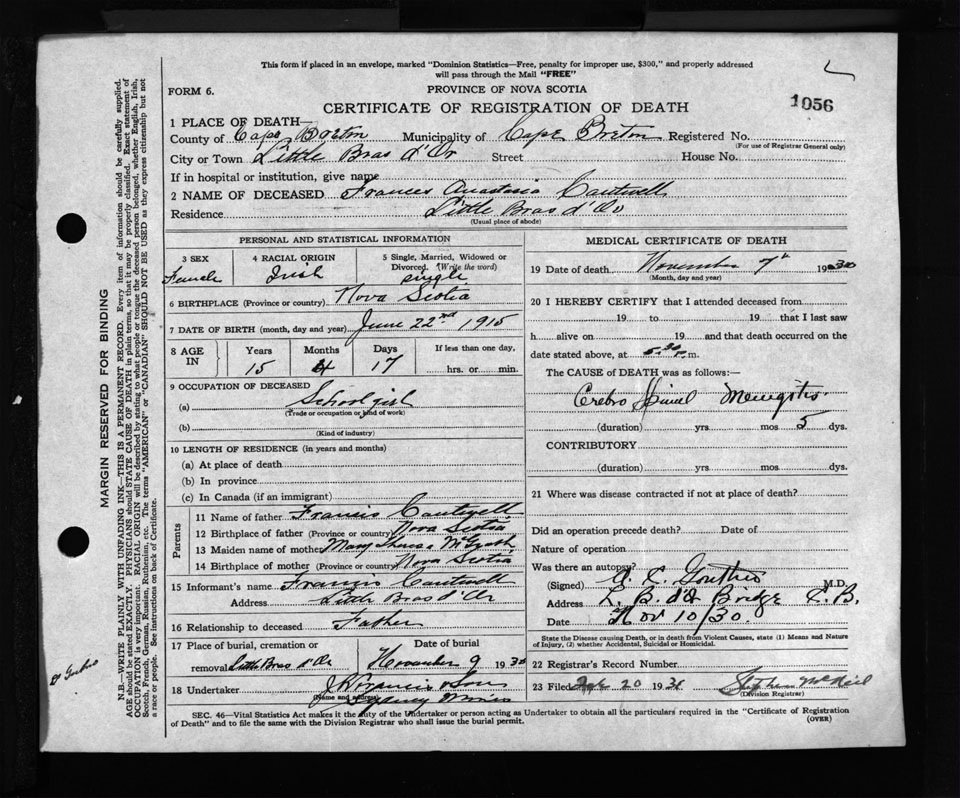 This form if placed in an envelope, marked "Dominion Statistics—Free, penalty for improper use, $300," and properly addressed
will pass through the Mail "FREE"
FORM 6.
PROVINCE OF NOVA SCOTIA
CERTIFICATE OF REGISTRATION OF DEATH
1056
1 PLACE OF DEATH—
County of Cape Breton Municipality of Cape Breton Registered No.
(For use of Registrar General only)
City or Town Little Bras d'Or Street House No.
If in hospital or institution, give name
2 NAME OF DECEASED Frances Anastasia Cantwell
Residence Little Bras d'Or
(Usual place of abode)
PERSONAL AND STATISTICAL INFORMATION
3 SEX 4 RACIAL ORIGIN 5 Single, Married, Widowed or
Divorced. (Write the word)
Female Irish single
6 BIRTHPLACE (Province or country) Nova Scotia
7 DATE OF BIRTH (month, day and year) June 22nd 1915
8 AGE IN Years Months Days If less than one day,
15 4 17 hrs. or min.
9 OCCUPATION OF DECEASED
(a) School girl
(Trade or occupation or kind of work)
(b)
(Kind of industry)
10 LENGTH OF RESIDENCE (in years and months)
(a) At place of death
(b) In province
(c) In Canada (if an immigrant)
Parents
11 Name of father Francis Cantwell
12 Birthplace of father (Province or country) Nova Scotia
13 Maiden name of mother Mary McGrath
14 Birthplace of mother (Province or country) Nova Scotia
15 Informant's name Francis Cantwell
Address Little Bras d'Or
16 Relationship to deceased Father
17 Place of burial, cremation or Date of burial
removal Little Bras d'Or November 9 1930
18 Undertaker & Son
(Name and address) Sydney Mines
MEDICAL CERTIFICATE OF DEATH
19 Date of death November 7th 1930
(Month, day and year)
20 I HEREBY CERTIFY that I attended deceased from
19 to 19 that I last saw
h alive on 19 and that death occurred on
date stated above, at 5.30 P.m.
The CAUSE of DEATH was as follows:—
Cerebro Spinal Mengitis
(duration) yrs mos 5 dys.
CONTRIBUTORY
(duration) yrs. mos. dys.
21 Where was disease contracted if not at place of death?
Did an operation precede death? Date of
Nature of operation
Was there an autopsy?
(Signed) M.D.
Address L. B. d'Or Bridge C.B.
Date Nov 10/30.
State the Disease causing Death, or in death from Violent Causes, state (1) Means and Nature
of Injury, (2) whether Accidental, Suicidal or Homicidal.
22 Registrar's Record Number
23 Filed 20 193 Stephen McNeil
(Division Registrar)
SEC. 46—Vital Statistics Act makes it the duty of the Undertaker or person acting as Undertaker to obtain all the particulars required in the "Certificate of Registration
of Death" and to file the same with the Division Registrar who shall issue the burial permit.
(OVER)
MARGIN RESERVED FOR BINDING
N.B.—WRITE PLAINLY WITH UNFADING INK—THIS IS A PERMANENT RECORD. Every item of information should be carefully supplied.
AGE should be stated EXACTLY. PHYSICIANS should STATE CAUSE OF DEATH in plain terms, so that it may be properly classified. Exact statement of
OCCUPATION is very important. RACIAL ORIGIN will be described by stating to what people or tongue the deceased person belonged, whether English, Irish,
Scotch, French, German, Russian, Ruthenian, etc. The terms "AMERICAN" or "CANADIAN" SHOULD NOT BE USED as they express citizenship but not
a race or people. See instructions on back of Certificate.